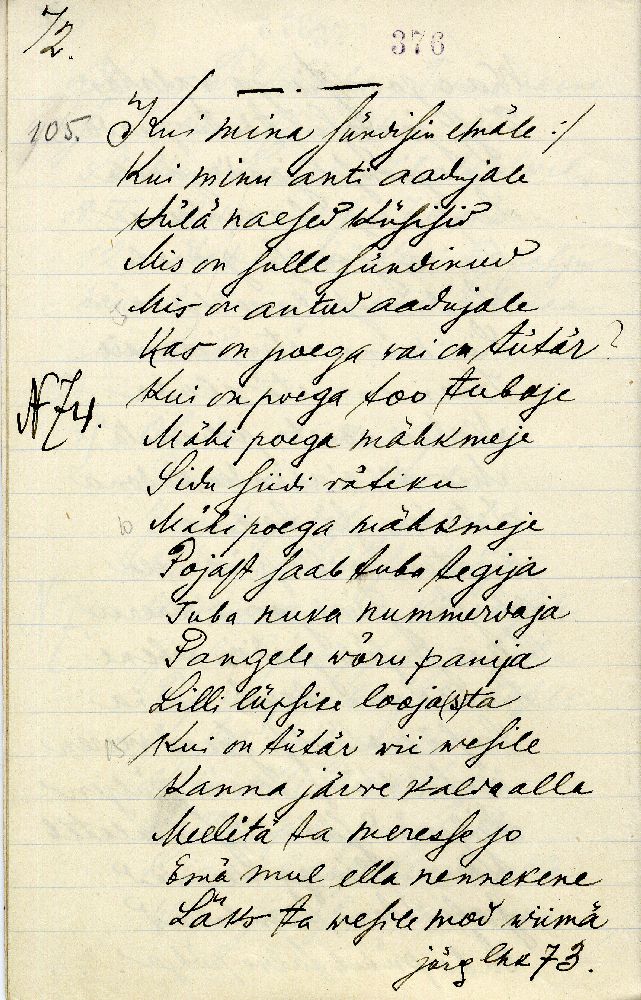 72.
376
105. Kui mina sündisin emäle :/
Kui minu anti aadujale
Külä naesed küsisid
Mis on sulle sündinud
5 Mis on antud aadujale
Kas on poega vai on tütär?
N 74. Kui on poega too tubaje
Mähi poega mähkmeje
Sidu siidi rätiku
10 Mähi poega mähkmeje
Pojast saab tuba tegija
Tuba nuka nummerdaja
Pangele wõru panija
Lilli lüpsise looja(s)ta
15 Kui on tütär wii wesile
Kanna järve kalda alla
Meelitä ta meresse jo
Emä mul ella nennekene
Läks ta wesile mod wiimä
järg lhk 73.